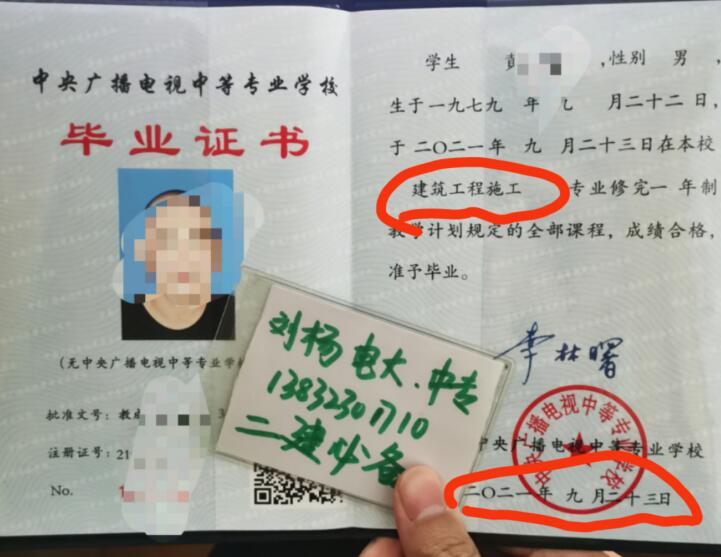 中央广播电视中等专业学校
毕业证书
(无中央广播电视中等专业学校
批准文号：教成 3
注册证号：21
No. 1
学生 彭 ,性别 男 ,
生于一九七九 年 九 月二十二日,
于 二〇二一年 九 月二十三日在本校
建筑工程施工 专业修完一 年制
教学计划规定的全部课程，成绩合格，
准予毕业。
李林曙
中央广播电视中等专业学校
中央广播电视中等专业学校
二〇二一年 九 月二十三日
刘杨电大、中专
13832301710
二建必备